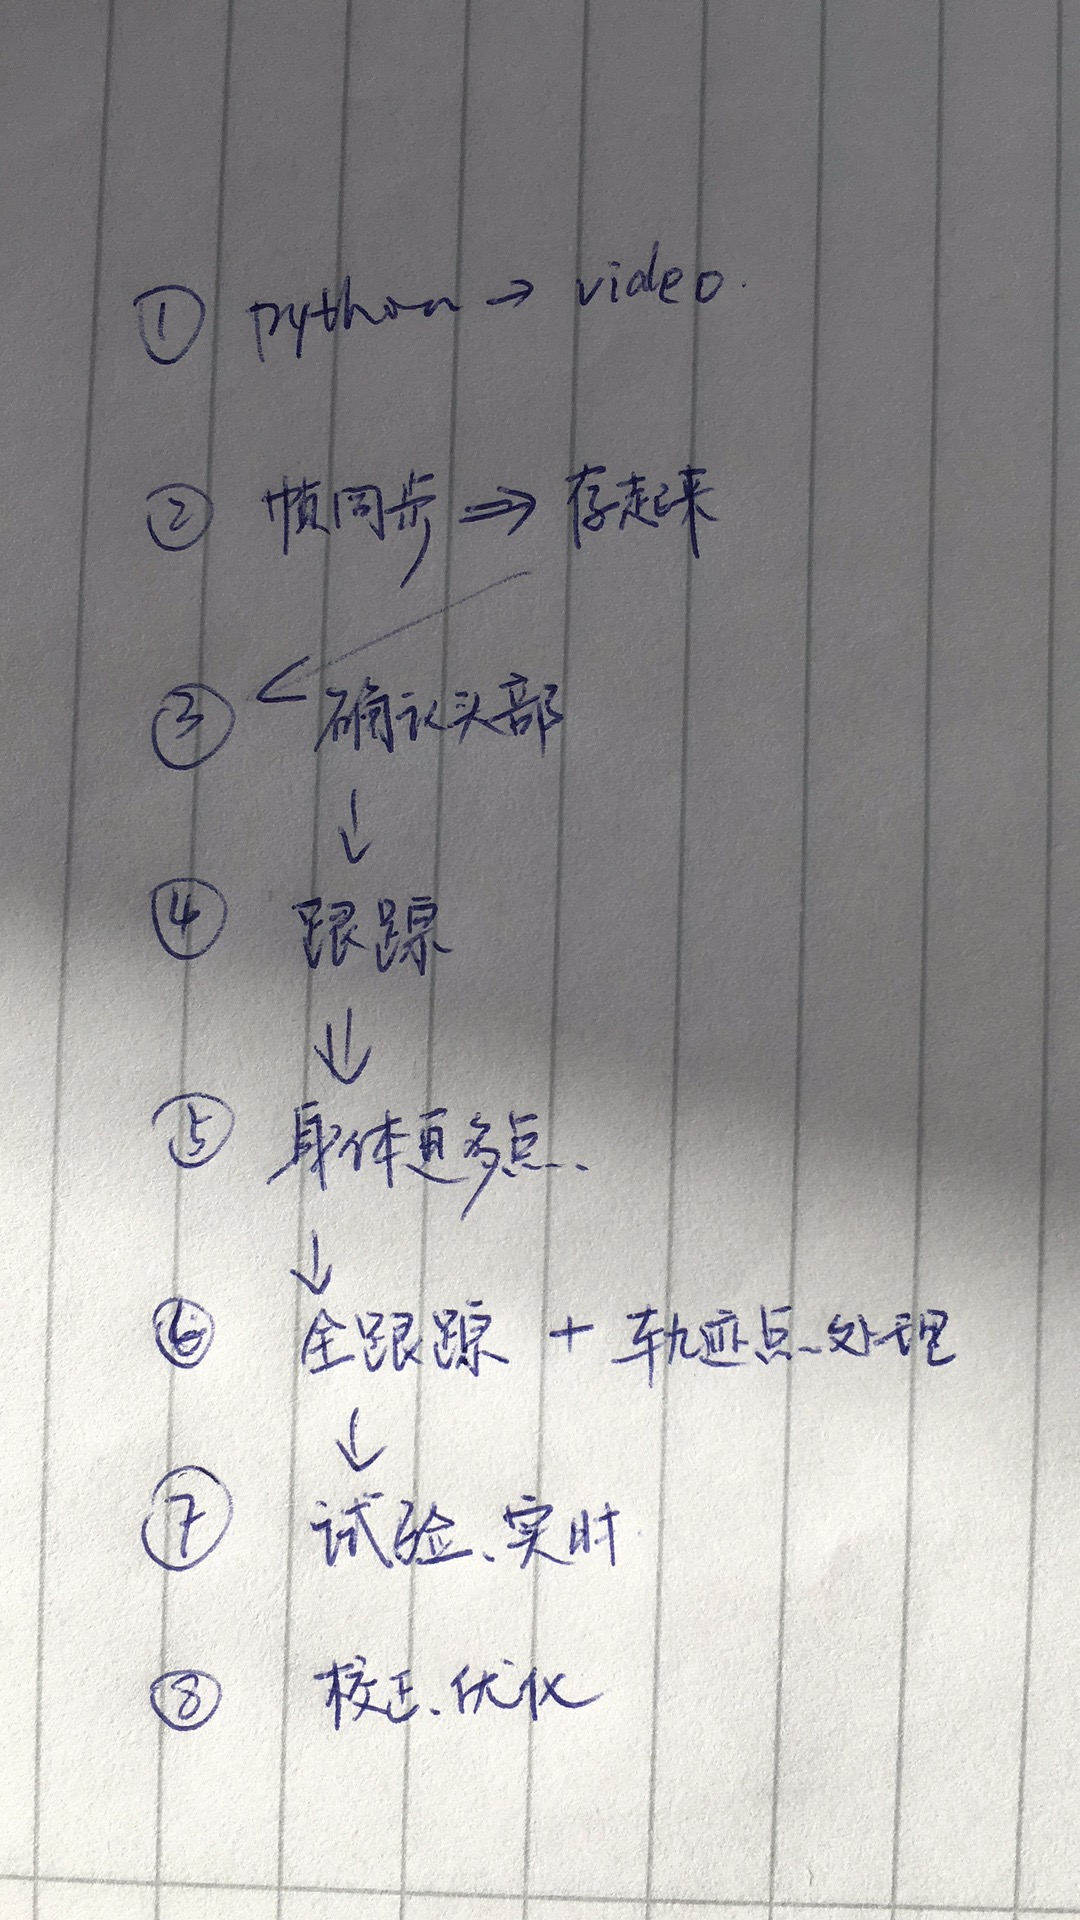 ① python → video.
② 帧同步 ⇒ 存起来
③ 确认头部
↓
④ 跟踪
⇓
⑤ 身体更多点、
↓
⑥ 全跟踪 + 轨迹点处理
↓
⑦ 试验、实时
⑧ 校正、优化